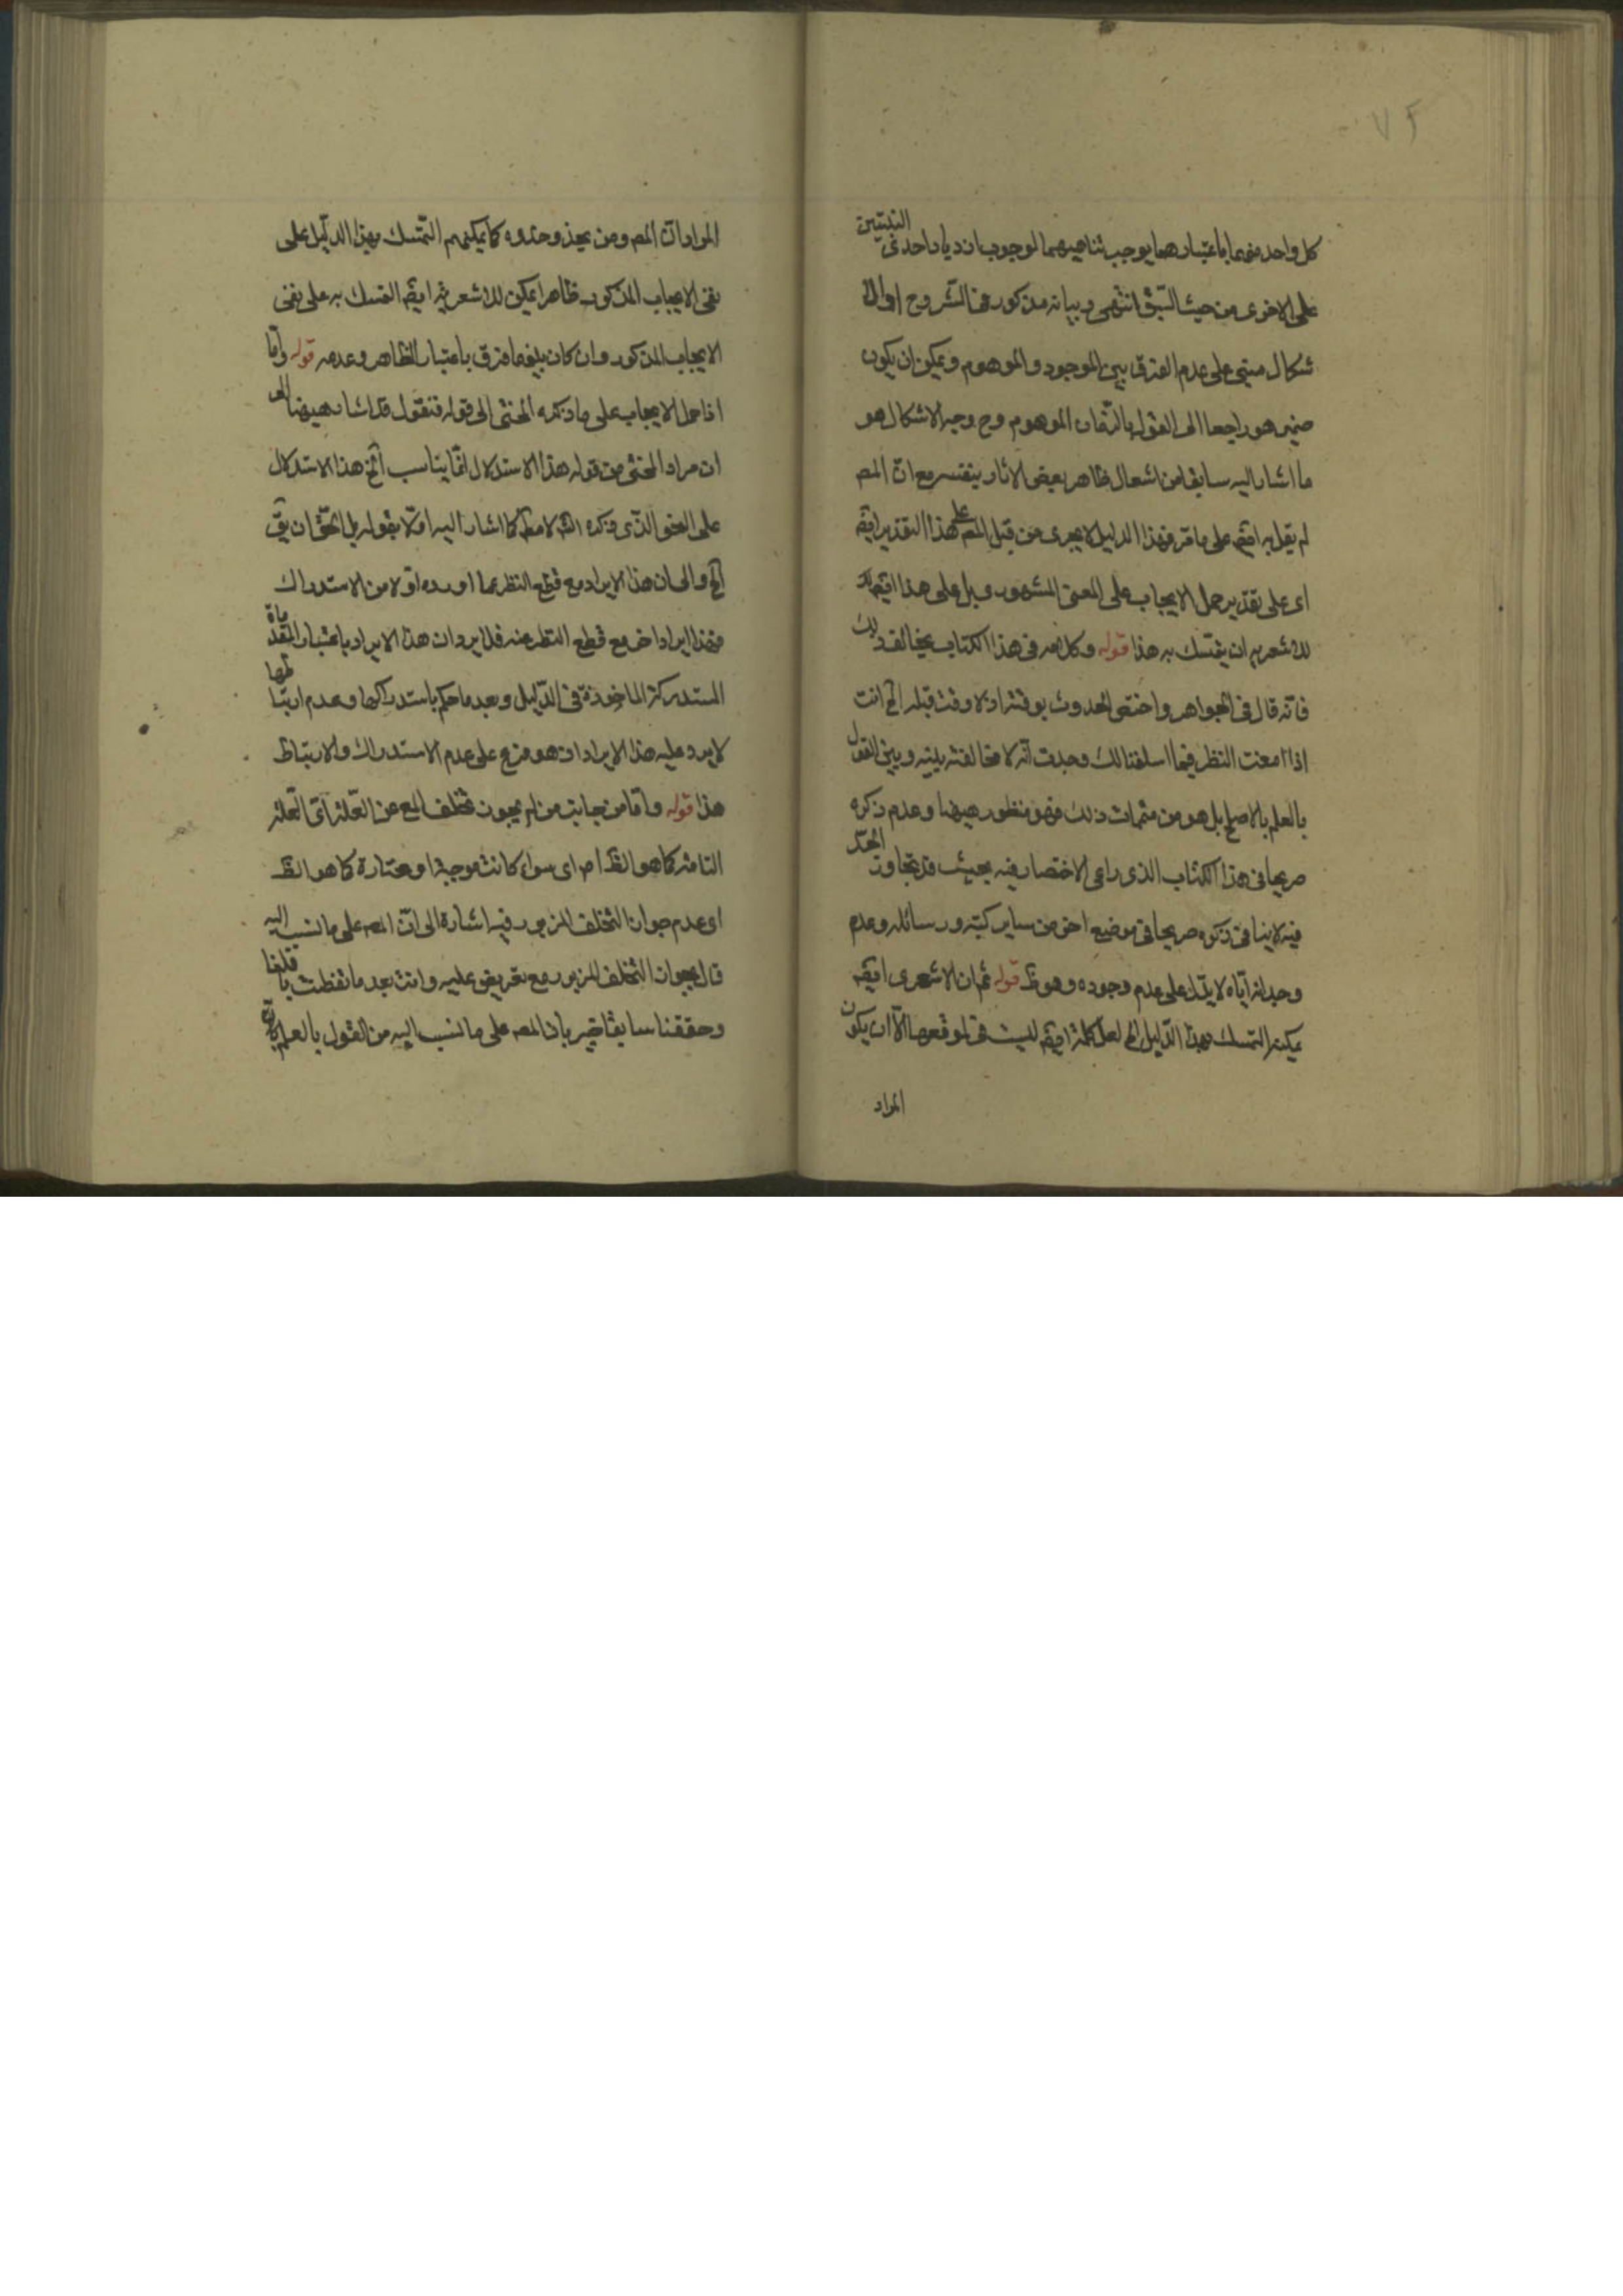 ٧٢
كل واحد منهما باعتبارهما يوجب تناهيهما لوجوب ازدياد احدى النسبتين
على الاخرى من حيث السبق انتهى وبيانه مذكور فى الشروح اوالا
شكال مبنى على عدم الفرق بين الموجود والموهوم ويمكن ان يكون
ضمير هو راجعا الى القول بالزمان الموهوم وح وجه الاشكال هو
ما اشار اليه سابقا من اشعال ظاهر بعض الاثار بنفسه مع ان المص
لم يقل به ايضم على ما مر فهذا الدليل لا يجرى من قبل المص على هذا التقدير ايضم
اى على تقدير حمل الايجاب على المعنى المشهور وبل على هذا ايضم
للاشعرى ان يتمسك به هذا قوله وكلامه فى هذا الكتاب يخالف ذلك
فانه قال فى الجواهر واختص الحدوث بوقته اذ لا وقت قبله الخ انت
اذا امعنت النظر فيما اسلفنا لك وجدت انه لا مخالفة بينه وبين القول
بالعلم بالاصلح بل هو من متممات ذلك فهو منظور ههنا وعدم ذكره
صريحا فى هذا الكتاب الذى راعى الاختصار فيه بحيث قد تجاوز الحد
فيه لا ينافى ذكره صريحا فى موضع اخر من ساير كتبه ورسائله وعدم
وجدانه اياه لا يدل على عدم وجوده وهو ظ قوله ثم ان الاشعرى ايضم
يمكنه التمسك بهذا الدليل الخ لعل كلمة ايضم ليست فى موقعها الا ان يكون
المراد
المراد ان المص ومن يحذو حذوه كما يمكنهم التمسك بهذا الدليل على
نفى الايجاب المذكور ظاهرا يمكن للاشعرية ايضم التمسك به على نفى
الايجاب المذكور وان كان بينهما فرق باعتبار الظاهر وعدمه قوله واما
اذا حمل الايجاب على ما ذكره المحشى الى قوله فنقول قد اشار ههنا الى
ان مراد المحشى من قوله هذا الاستدلال انما يناسب الخ هذا الاستدلال
على النحو الذى ذكره الش لا مط كما اشار اليه اولا بقوله بل الحق ان يق
الخ والحال ان هذا الايراد مع قطع النظر عما اورده اولا من الاستدراك
فهذا ايراد اخر مع قطع النظر عنه فلا يرد ان هذا الايراد باعتبار المقدمات
المستدركة الماخوذة فى الدليل وبعد ما حكم باستدراكها وعدم ارتباطها
لا يرد عليه هذا الايراد اذ هو فرع على عدم الاستدراك والارتباط
هذا قوله واما من جانب من لم يجوز تخلف المع عن العلة اى العلة
التامة كما هو الظ ام اى سواء كانت موجبة او مختارة كما هو الظ
اى عدم جواز التخلف المزبور فيه اشارة الى ان المص على ما نسب اليه
قال بجواز التخلف المزبور مع تعريض عليه وانت بعد ما تفطنت بما قلنا
وحققنا سابقا خبير بان المص على ما نسب اليه من القول بالعلم